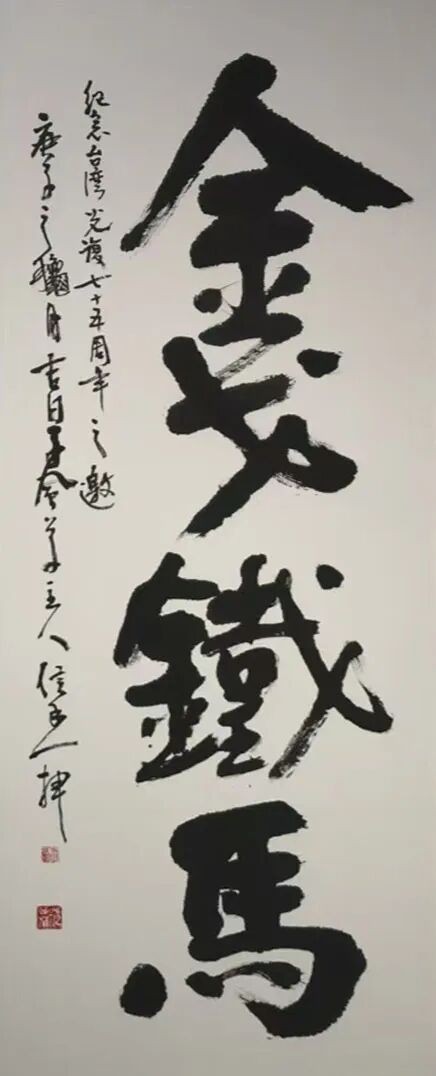 金戈鐵馬
紀念台灣光復七十五周年之邀
庚子之臘月吉日子令草主人信手一揮